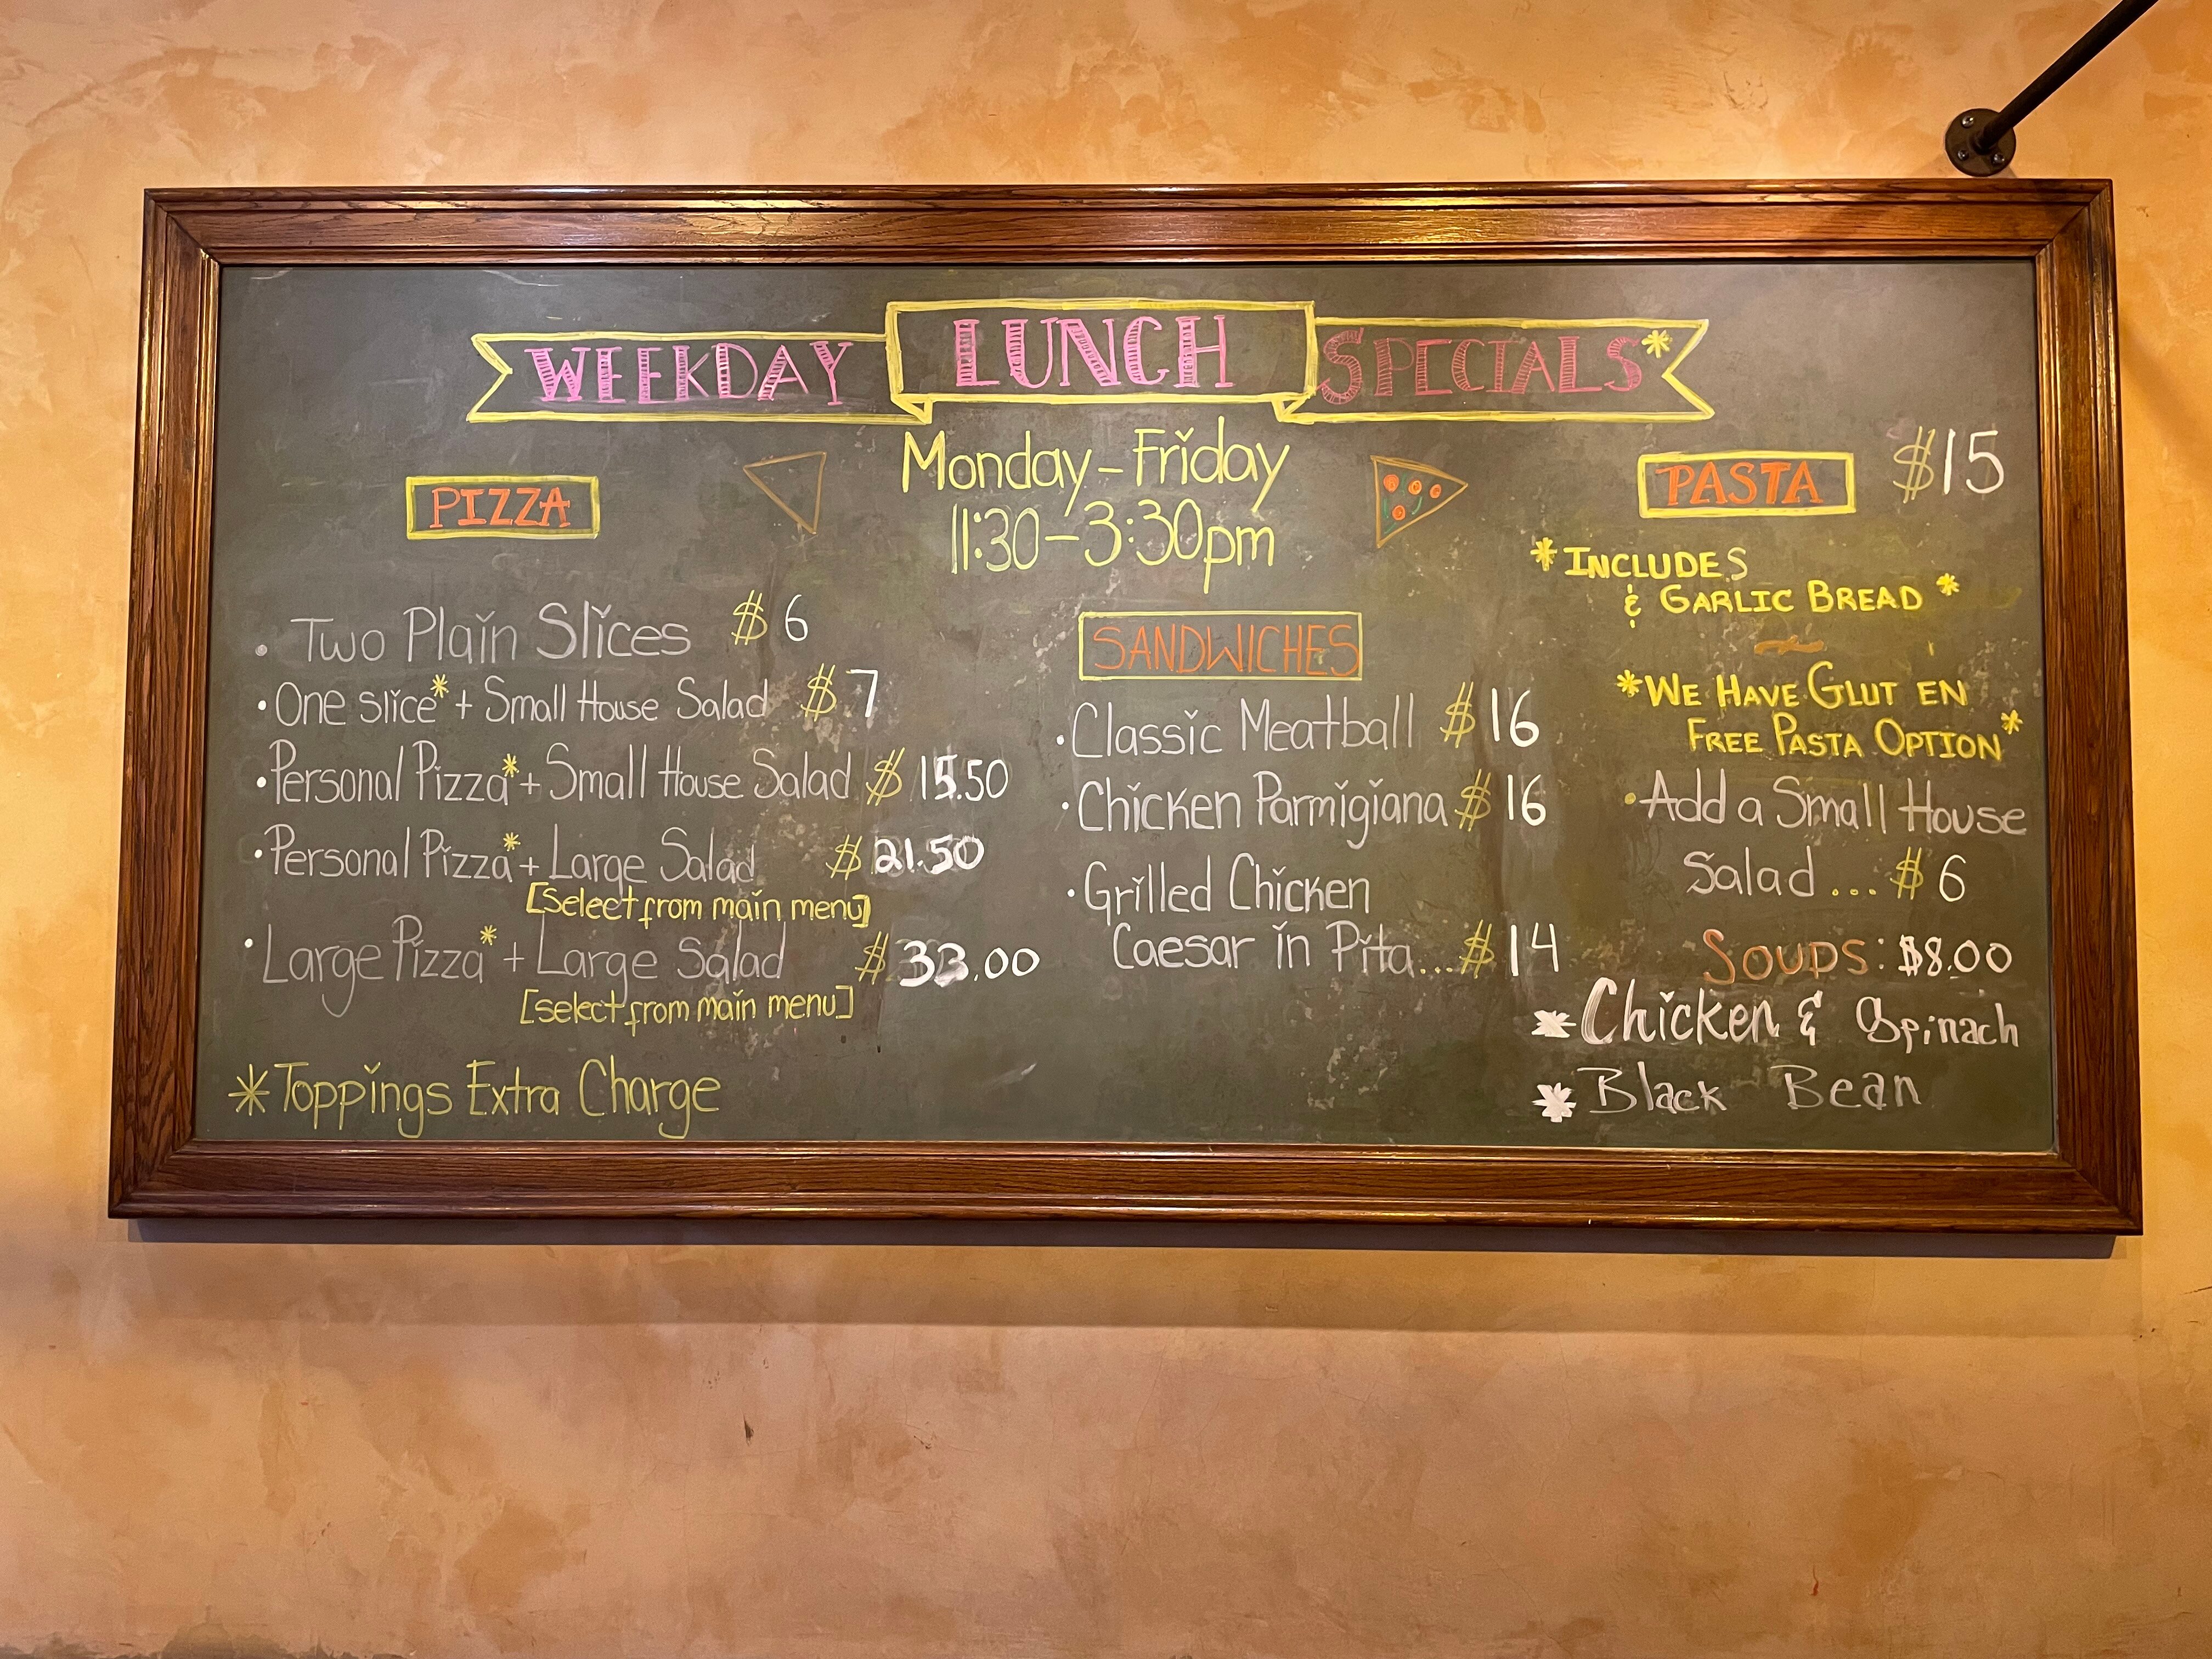 WEEKDAY LUNCH SPECIALS*
Monday-Friday
11:30-3:30pm
PIZZA
• Two Plain Slices $6
• One slice* + Small House Salad $7
• Personal Pizza* + Small House Salad $15.50
• Personal Pizza* + Large Salad $21.50
[select from main menu]
• Large Pizza* + Large Salad $33.00
[select from main menu]
*Toppings Extra Charge
SANDWICHES
• Classic Meatball $16
• Chicken Parmigiana $16
• Grilled Chicken
Caesar in Pita...$14
PASTA $15
*INCLUDES
& GARLIC BREAD*
*WE HAVE GLUT EN
FREE PASTA OPTION*
• Add a Small House
Salad... $6
SOUPS: $8.00
* Chicken & Spinach
* Black Bean